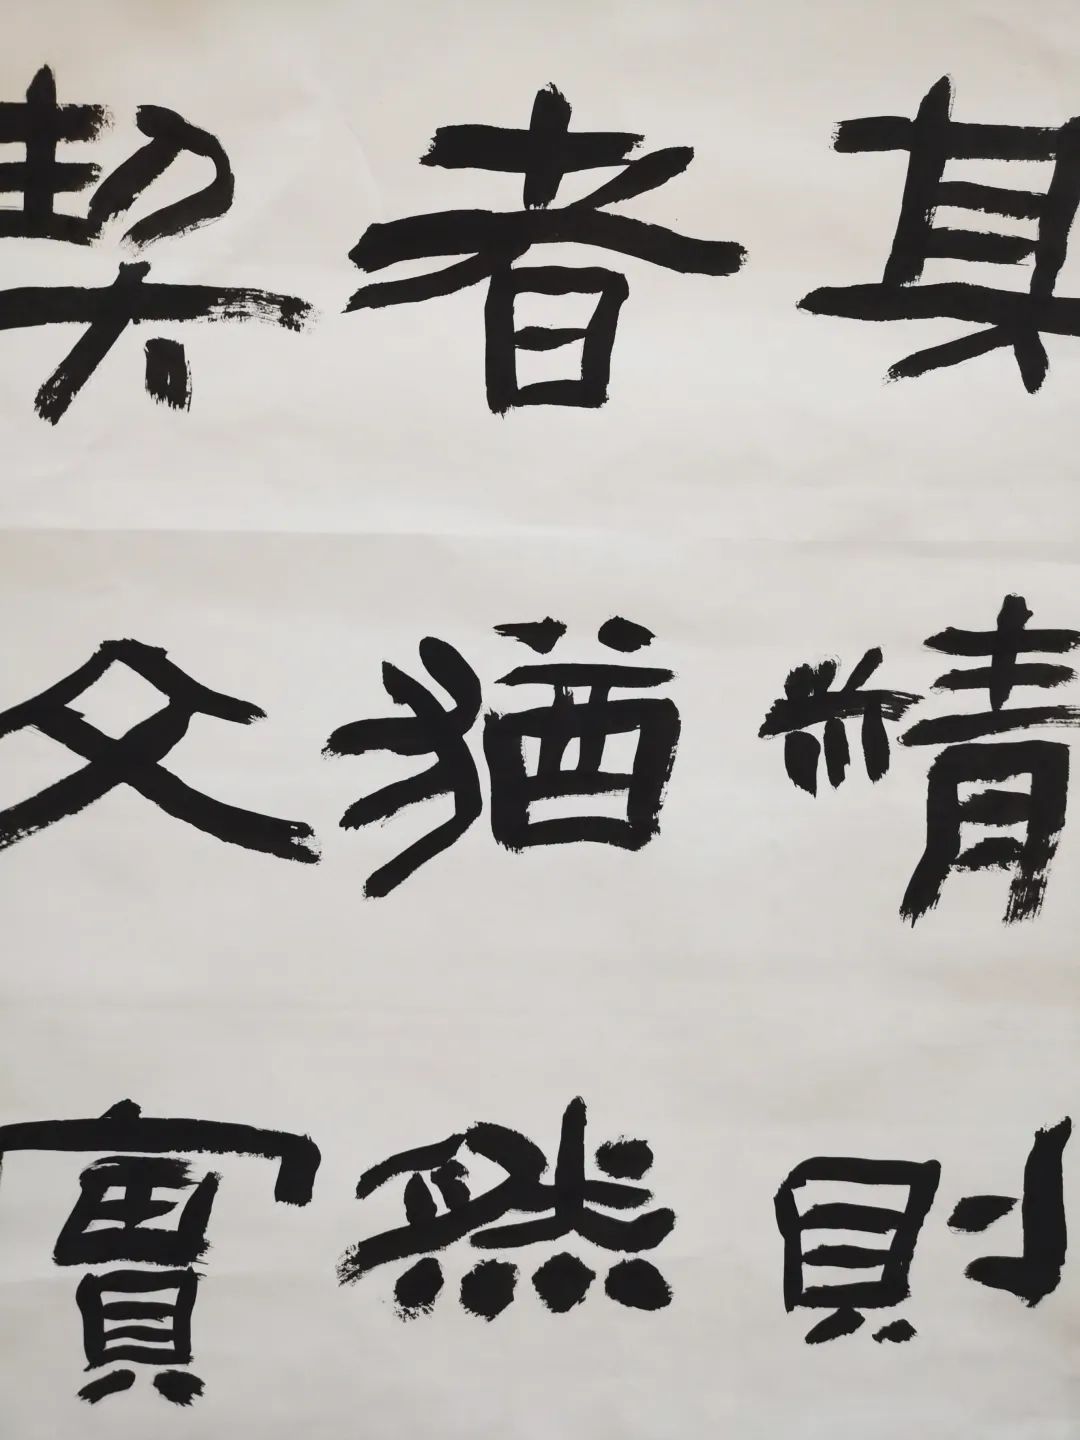 其情則
者猶然
契文實